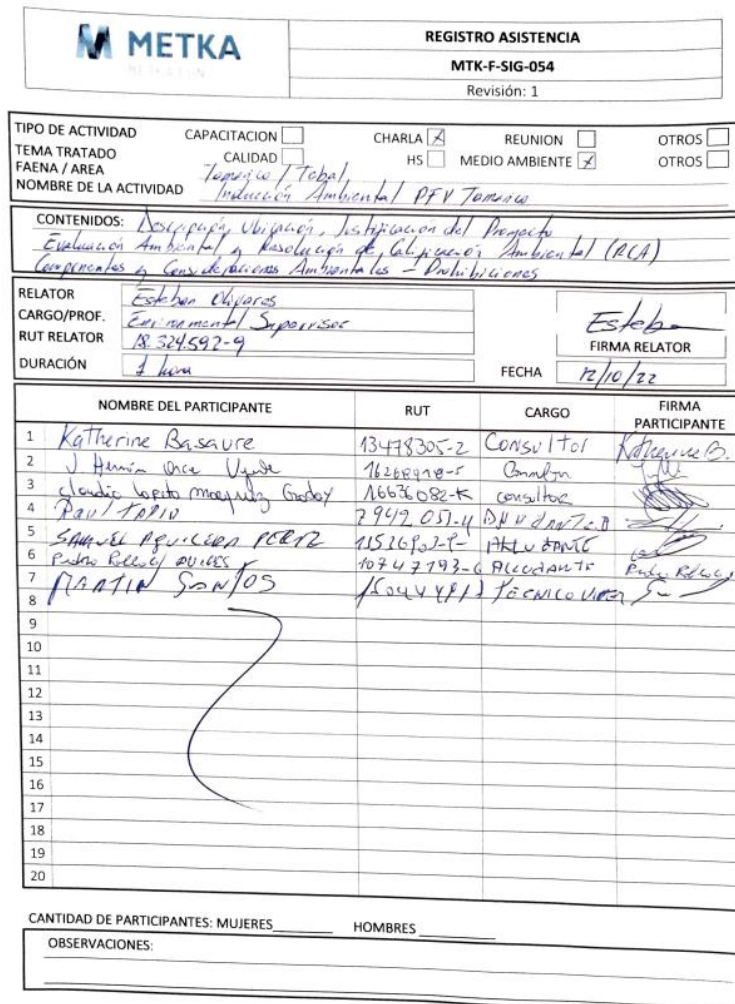 METKA
REGISTRO ASISTENCIA
MTK-F-SIG-054
Revisión: 1
TIPO DE ACTIVIDAD CAPACITACION CHARLA X REUNION OTROS
TEMA TRATADO CALIDAD HS MEDIO AMBIENTE X OTROS
FAENA / AREA Tamarico / Tobal
NOMBRE DE LA ACTIVIDAD Inducción Ambiental PFV Tamarico
CONTENIDOS: Descripción, Ubicación, Justificación del Proyecto
Evaluación Ambiental y Resolución de Calificación Ambiental (RCA)
Componentes y Consideraciones Ambientales - Prohibiciones
RELATOR Esteban Olivares
CARGO/PROF. Environmental Supervisor
RUT RELATOR 18.324.592-9
Esteba
FIRMA RELATOR
DURACIÓN 1 hora FECHA 12/10/22
NOMBRE DEL PARTICIPANTE RUT CARGO FIRMA PARTICIPANTE
1 Katherine Basaure 13478305-2 Consultor Katherine B.
2 J Hernán
3 claudio Godoy 16636082-K consultor
4 Paul TAPIA
5 SAMUEL AGUILERA PEREZ
6 Pedro 10747793-6
7 MARTIN SANTOS TECNICO
8
9
10
11
12
13
14
15
16
17
18
19
20
CANTIDAD DE PARTICIPANTES: MUJERES HOMBRES
OBSERVACIONES: